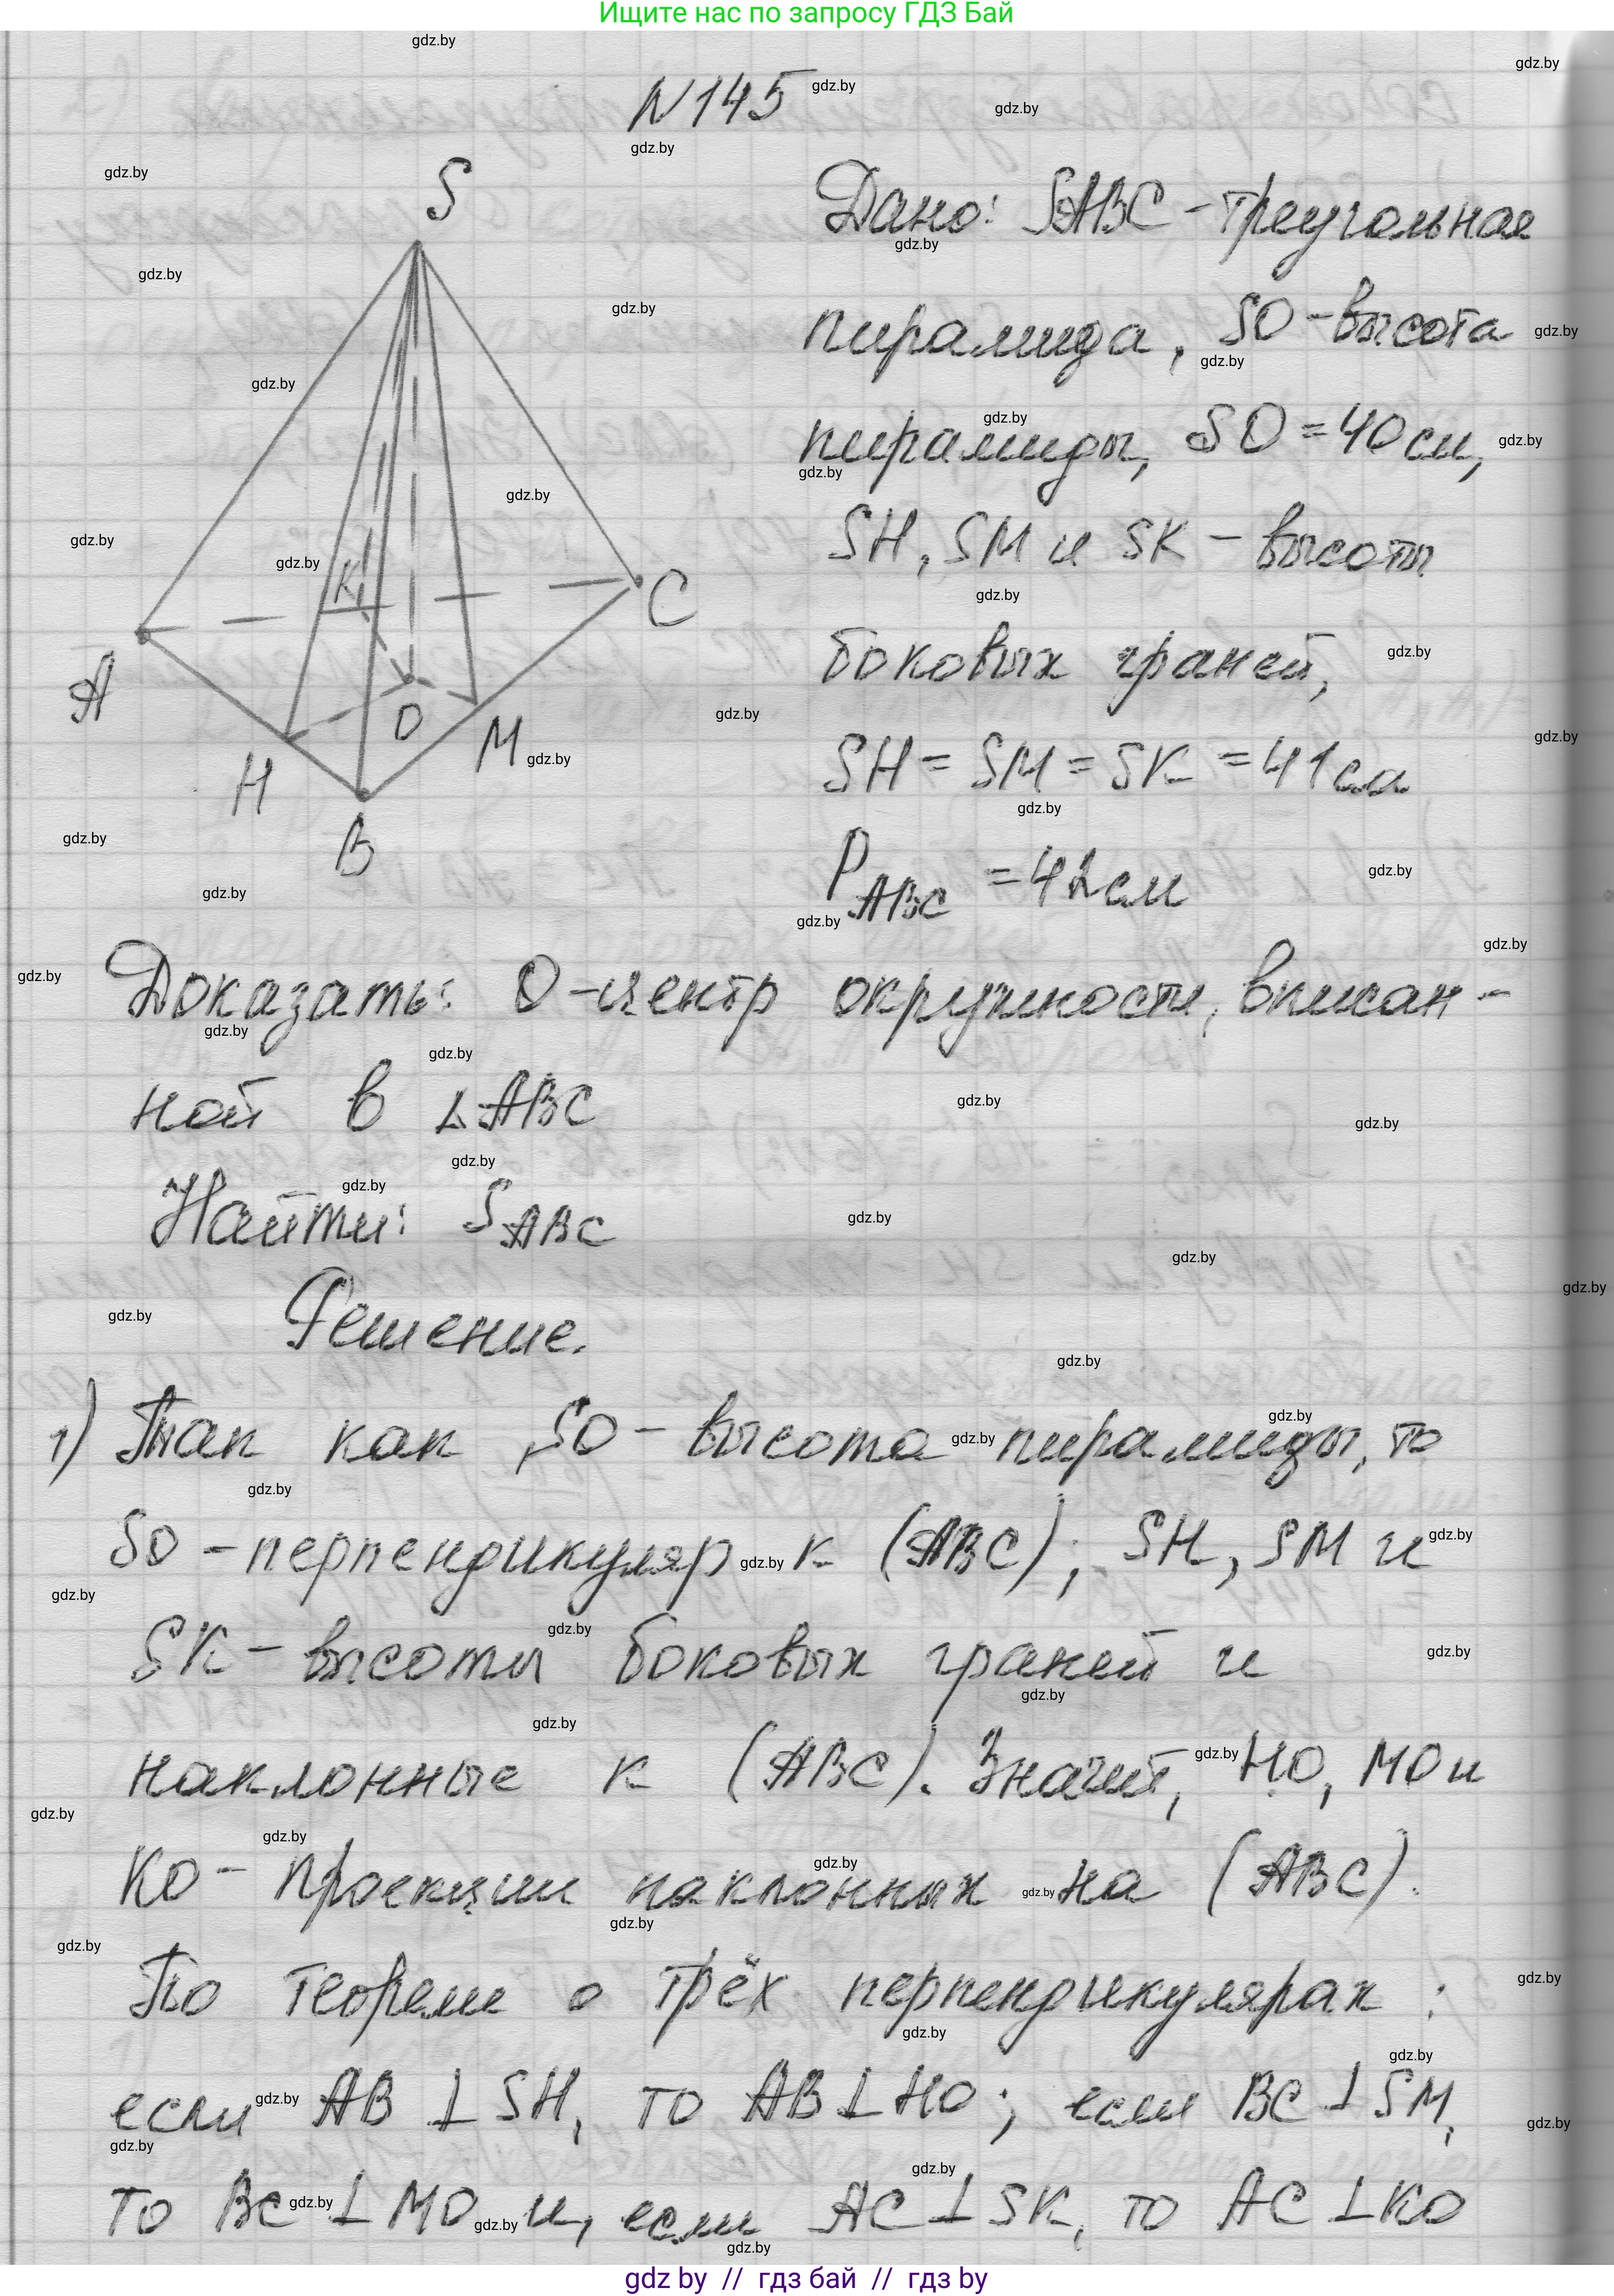 Ищите нас по запросу ГДЗ Бай
N 145
S
A
K
C
O
H
M
B
Дано: SABC - треугольная
пирамида, SO - высота
пирамиды, SO = 40 см,
SH, SM и SK - высоты
боковых граней,
SH = SM = SK = 41 см
P ABC = 42 см
Доказать: O - центр окружности, вписан-
ной в △ABC
Найти: S ABC
Решение.
1) Так как SO - высота пирамиды, то
SO - перпендикуляр к (ABC); SH, SM и
SK - высоты боковых граней и
наклонные к (ABC). Значит, HO, MO и
KO - проекции наклонных на (ABC).
По теореме о трёх перпендикулярах:
если AB ⊥ SH, то AB ⊥ HO; если BC ⊥ SM,
то BC ⊥ MO и, если AC ⊥ SK, то AC ⊥ KO
gdz by // гдз бай // гдз by